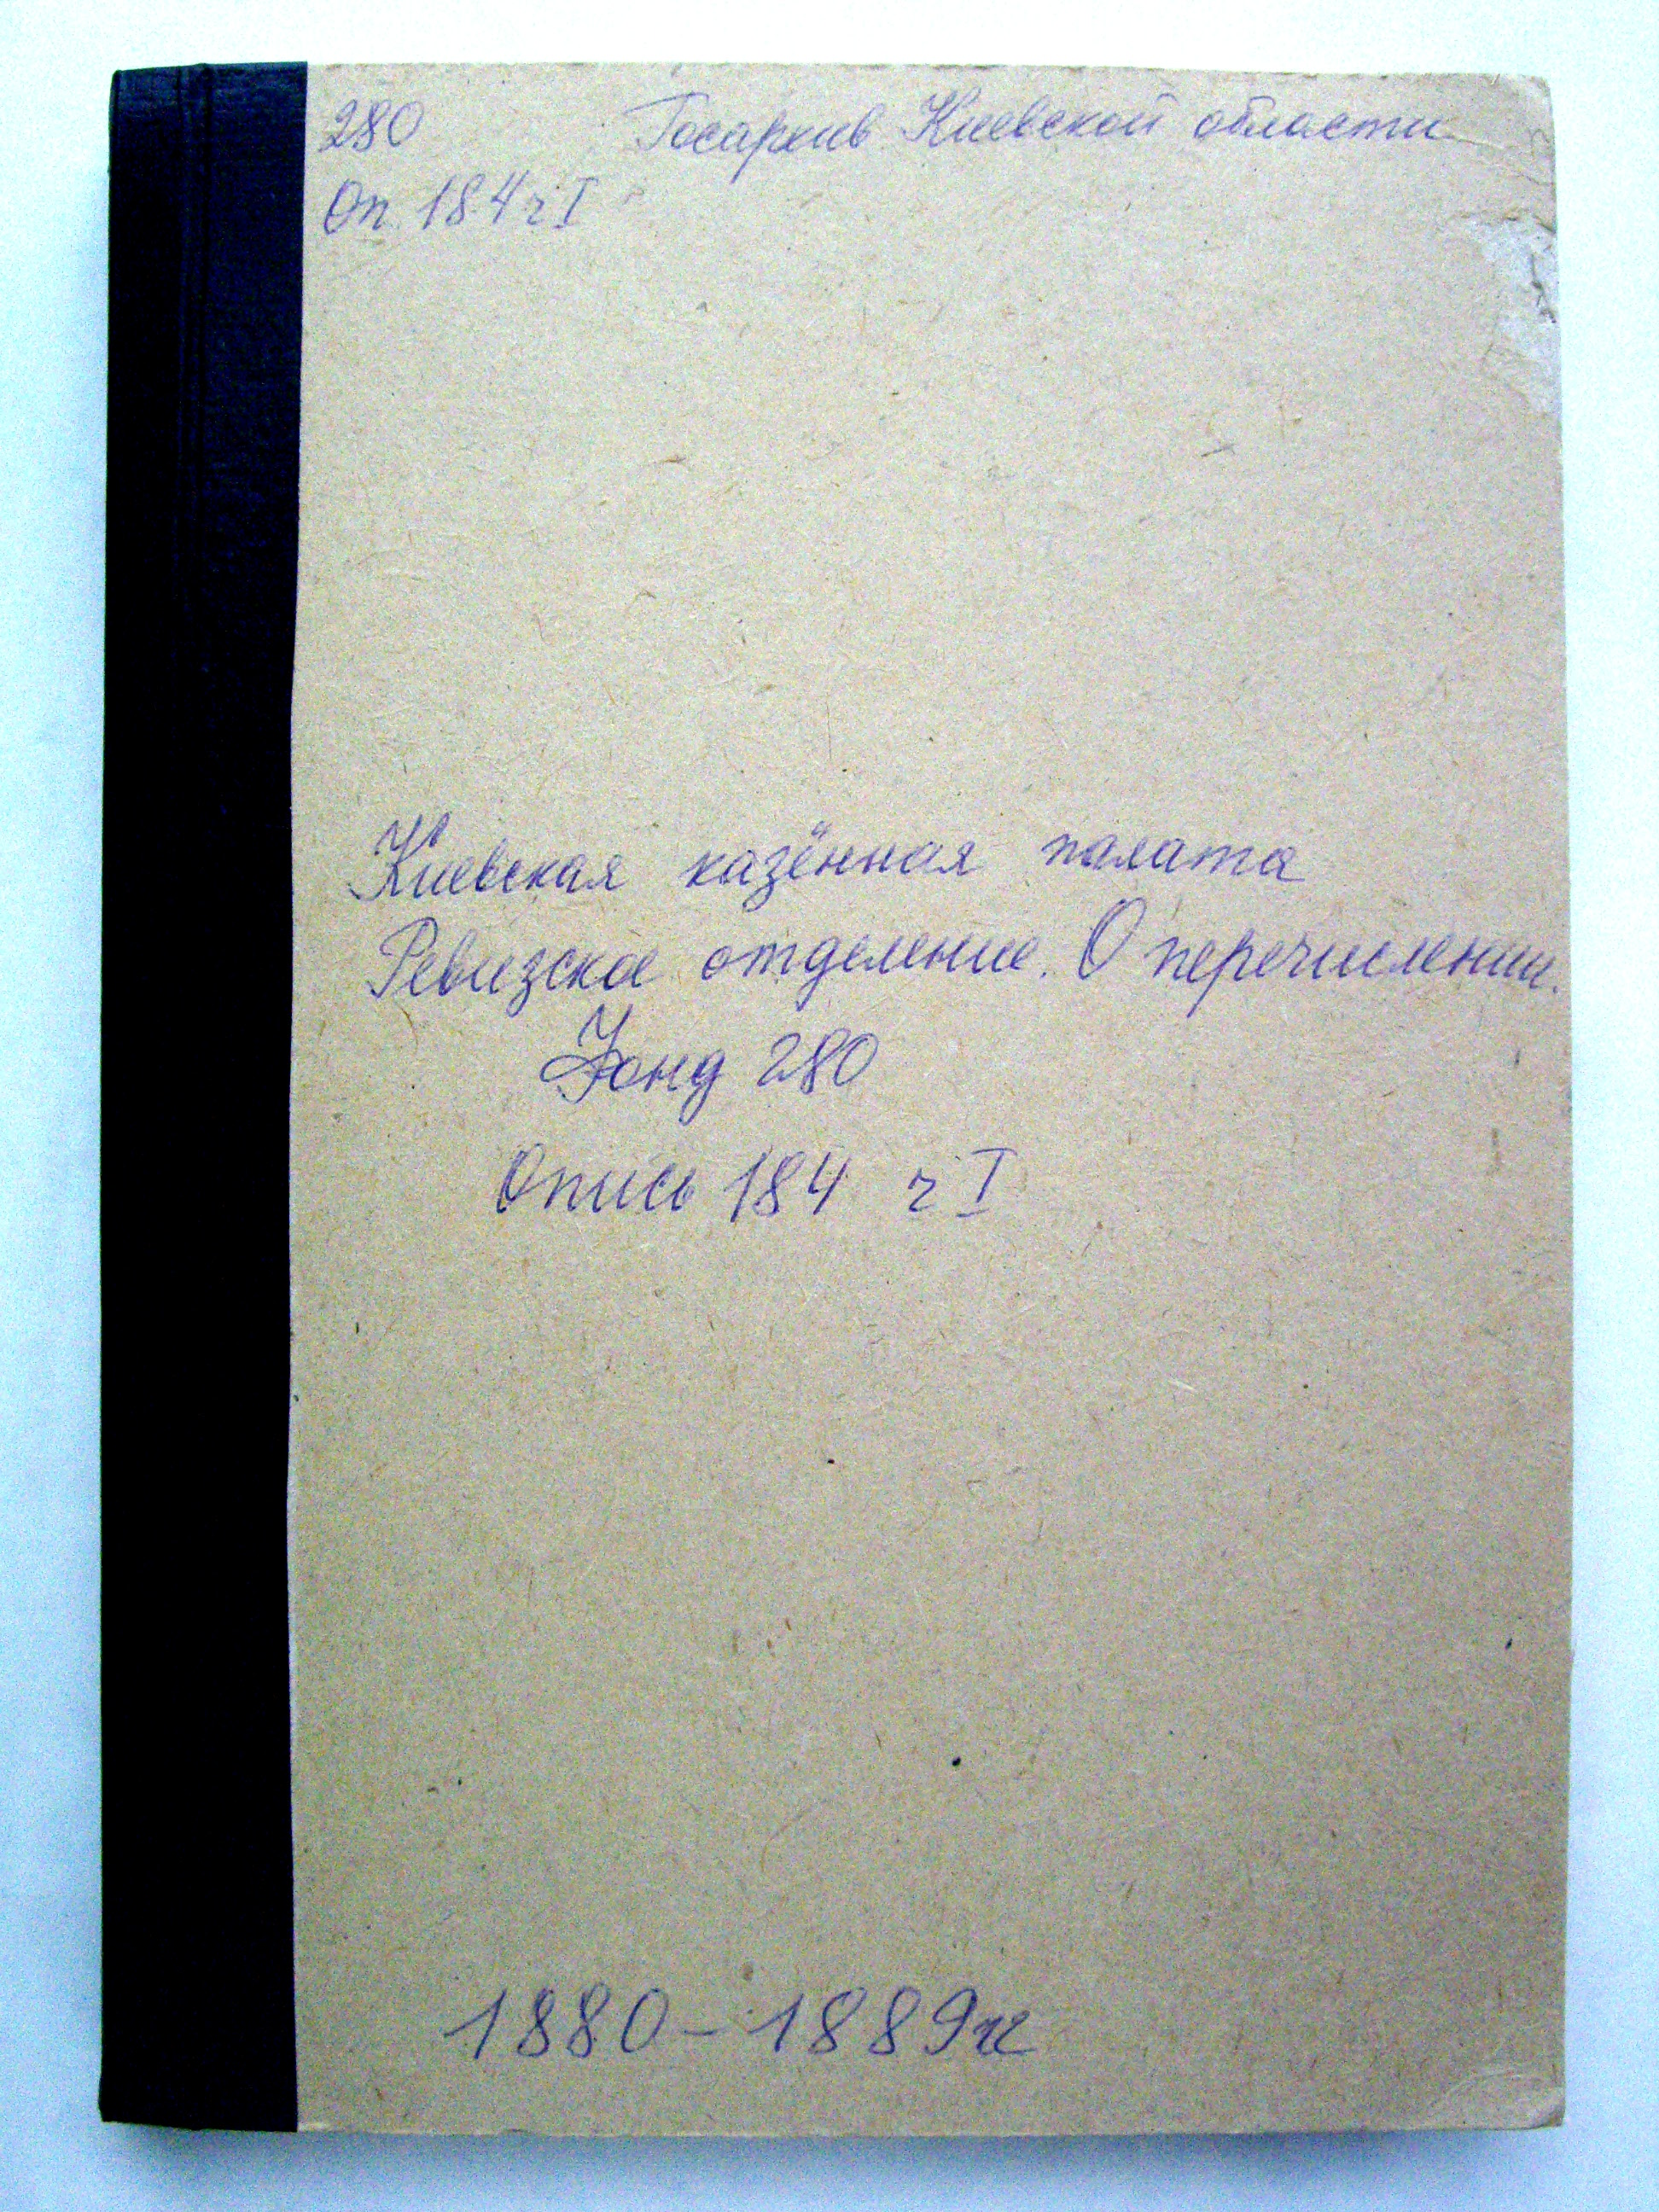 280 Госархив Киевской области
Оп. 184 ч I
Киевская казённая палата
Ревизское отделение. О перечислении.
Фонд 280
Опись 184 ч I
1880-1889гг